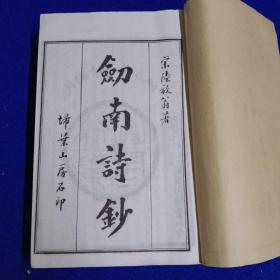 宋陸放翁著
劒南詩鈔
埽葉山房石印